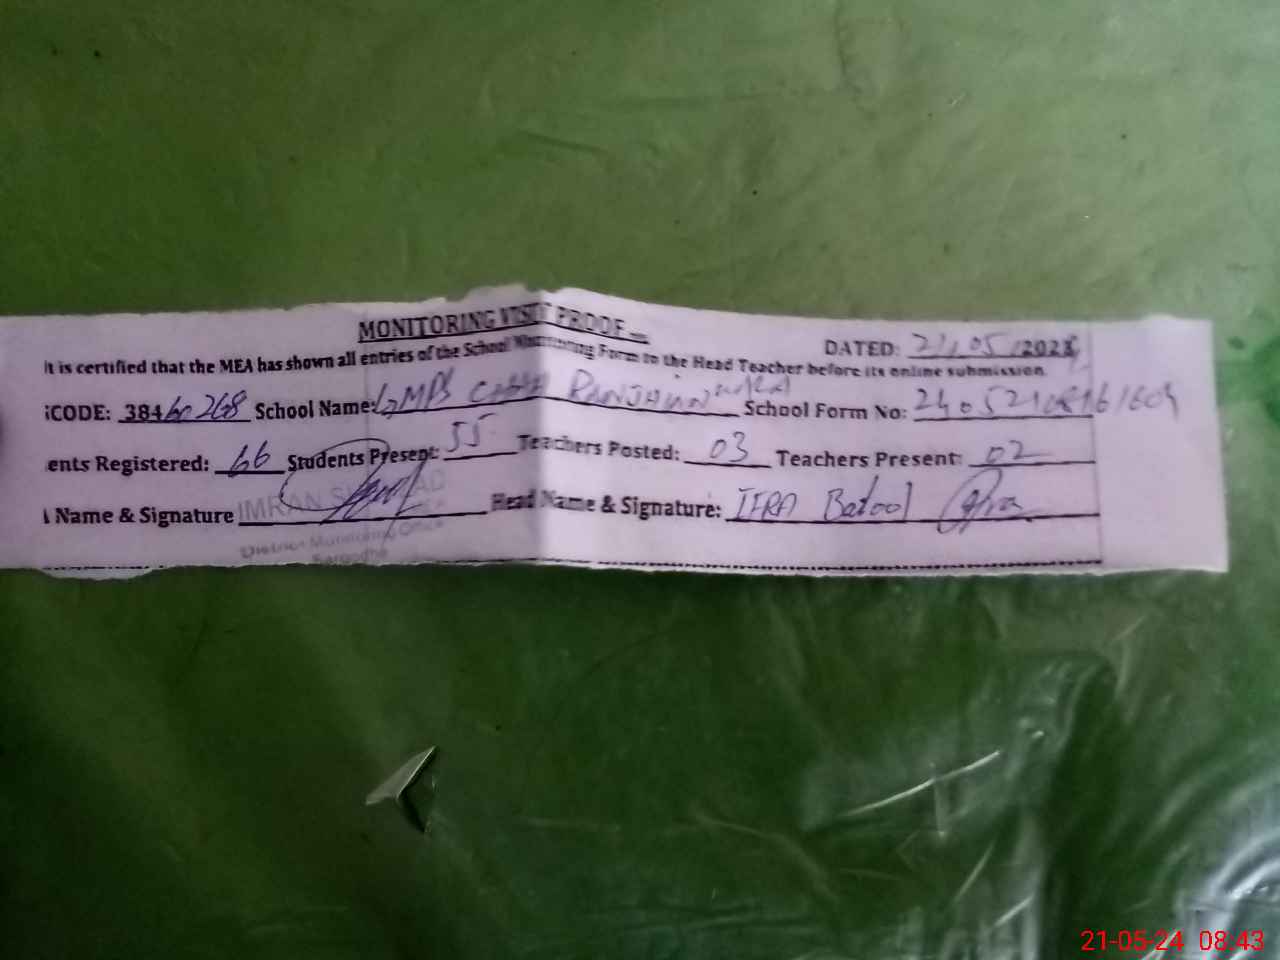 MONITORING VISIT PROOF
DATED: 21.05.2024
It is certified that the MEA has shown all entries of the School Monitoring Form to the Head Teacher before its online submission.
CODE: 384 268 School Name: GMPS CHAH RANJHIAN WALA School Form No:
ents Registered: 66 Students Present: 55 Teachers Posted: 03 Teachers Present: 02
Name & Signature IMRAN Head Name & Signature: IFRA Batool
District Monitoring Office
Sargodha
21-05-24 08:43